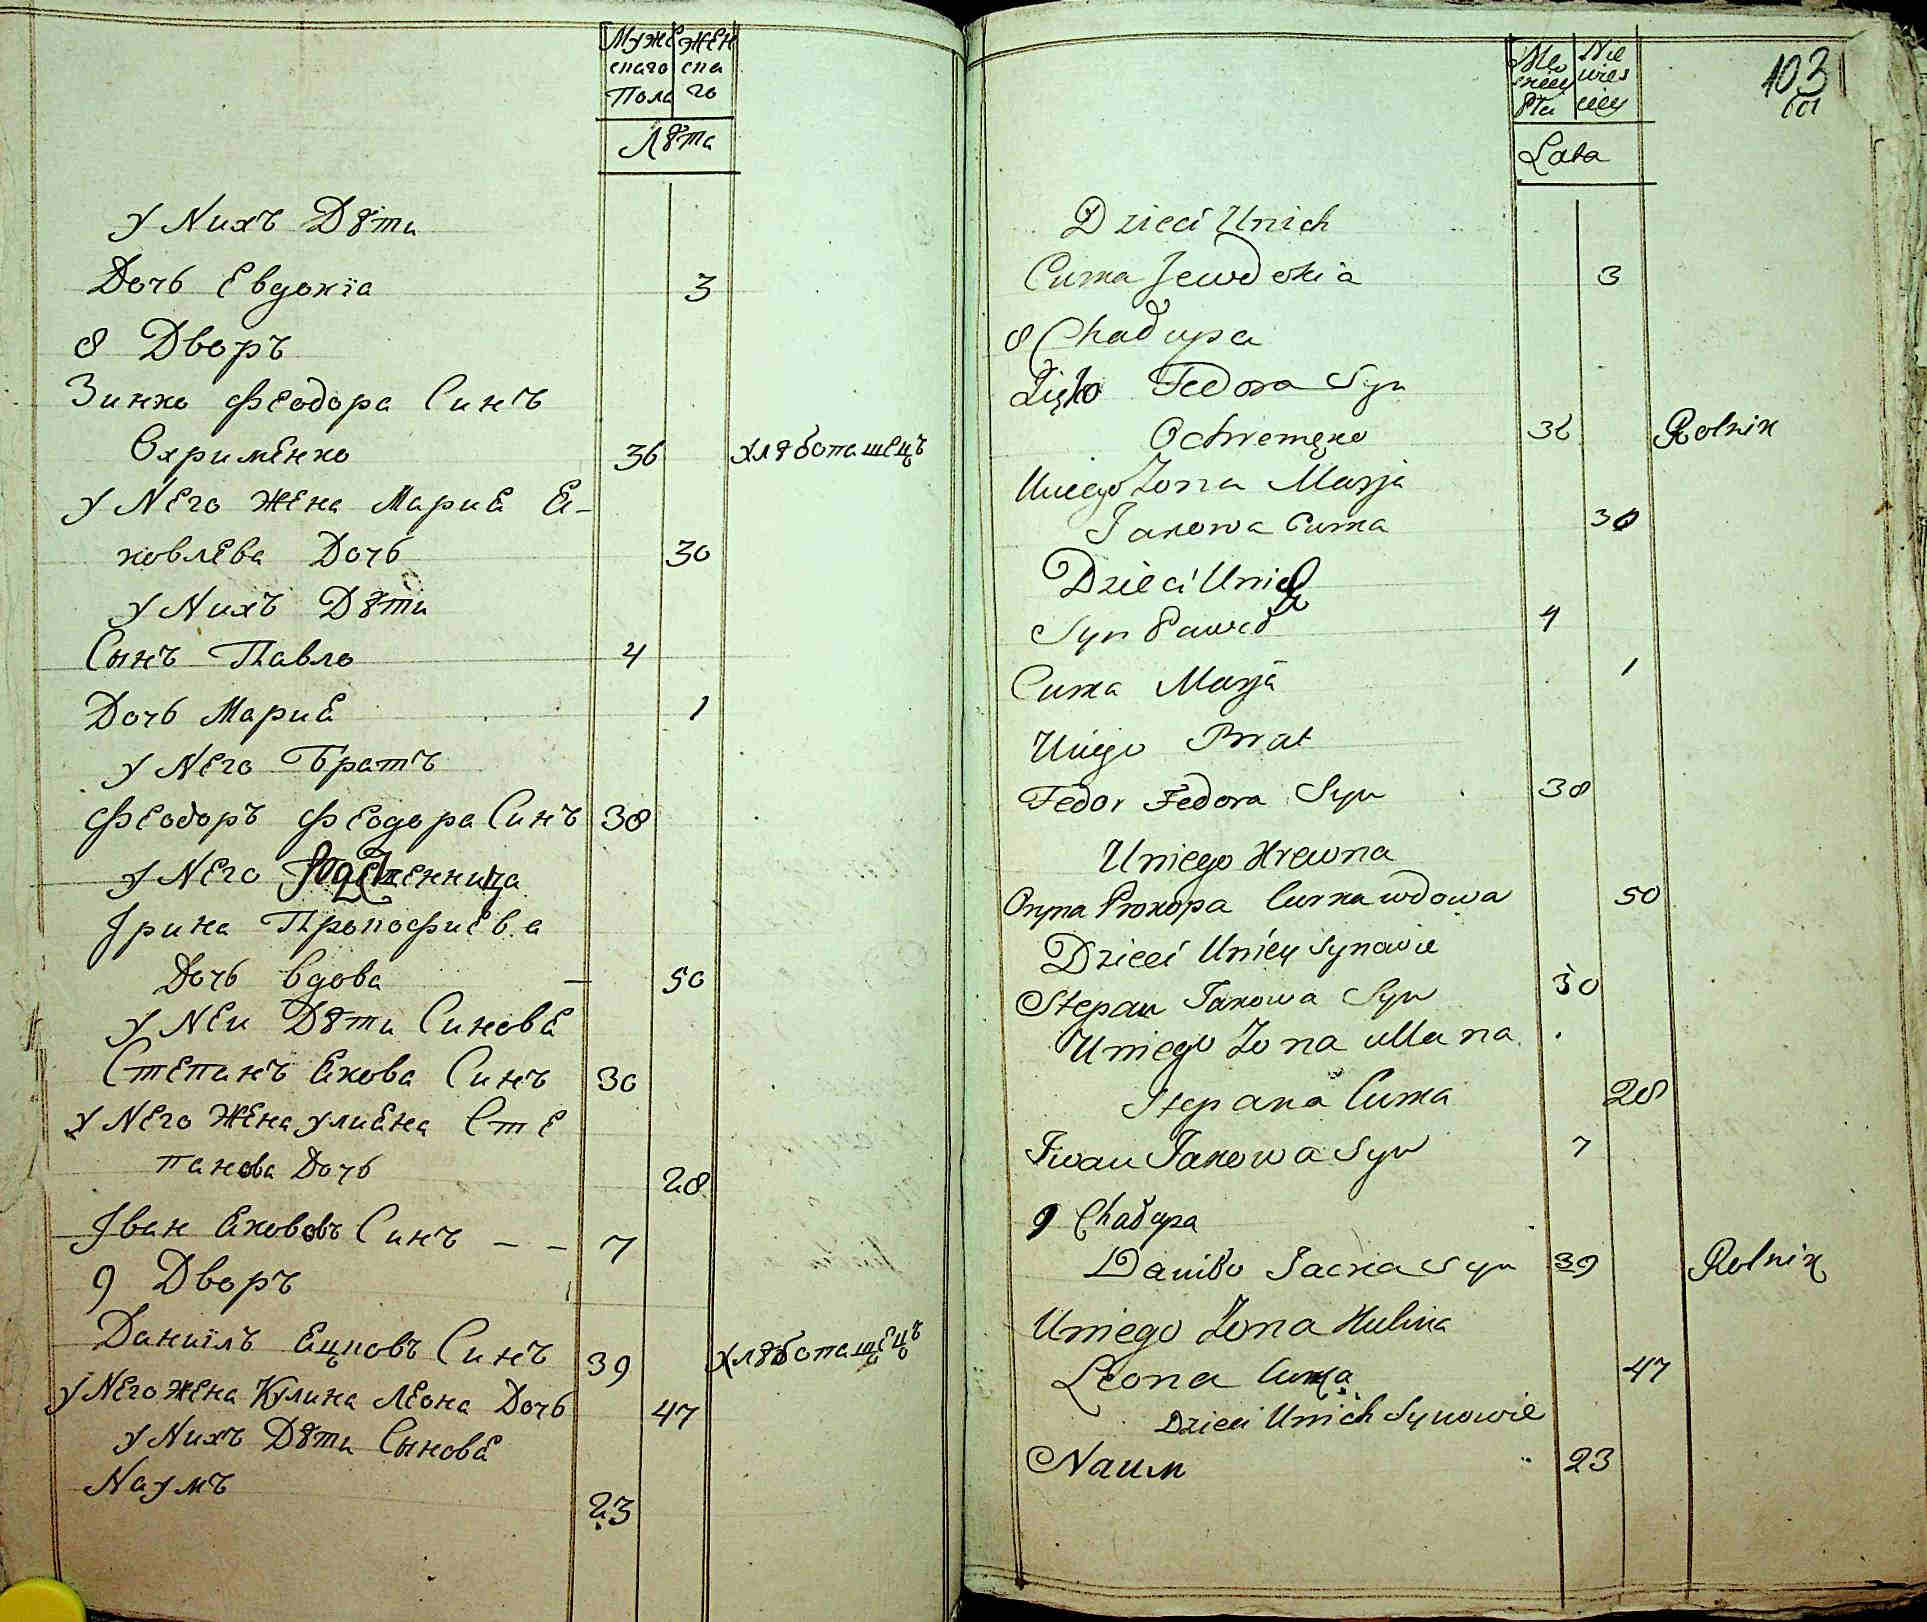 Муже Жен
скаго ска
Пола го
Лѣта
у Нихъ Дѣти
Дочь Евдокїа 3
8 Дворъ
Зинко Феодора Синъ
Охрименко 36 хлѣбопашецъ
у Него Жена Мариа Я-
ковлева Дочь 30
у Нихъ Дѣти
Сынъ Павло 4
Дочь Мариа 1
у Него Братъ
Феодоръ Феодора Синъ 38
у Него
Ірина Прокофиева
Дочь вдова — 50
у Неи Дѣти Синовя
Степанъ Якова Синъ 30
у Него Жена улияна Сте
панова Дочь 28
Іван Якововъ Синъ – – 7
9 Дворъ
Даниілъ Яцковъ Синъ 39 хлѣбопашецъ
у Него жена Кулина Леона Дочь 47
у Нихъ Дѣти Сыновя
Наумъ 23
103
Lata
Dzieci Unich
Curka Jewdokia 3
8 Chałupa
Fedora Syn
Ochremęko 36 Rolnik
Uniego Zona Marja
Jakowa Curka 30
Dzieci Unich
Syn Paweł 4
Curka Marja 1
Uniego Brat
Fedor Fedora Syn 38
Uniego Krewna
Oryna Prokopa Curka wdowa 50
Dzieci Uniey Synowie
Stepan Jakowa Syn 30
Uniego Zona Ullana
Stepana Curka 28
Iwan Jakowa Syn 7
9 Chałupa
Daniło Jacka Syn 39 Rolnik
Uniego Zona Kulina
Leona Curka 47
Dzieci Unich Synowie
Naum 23